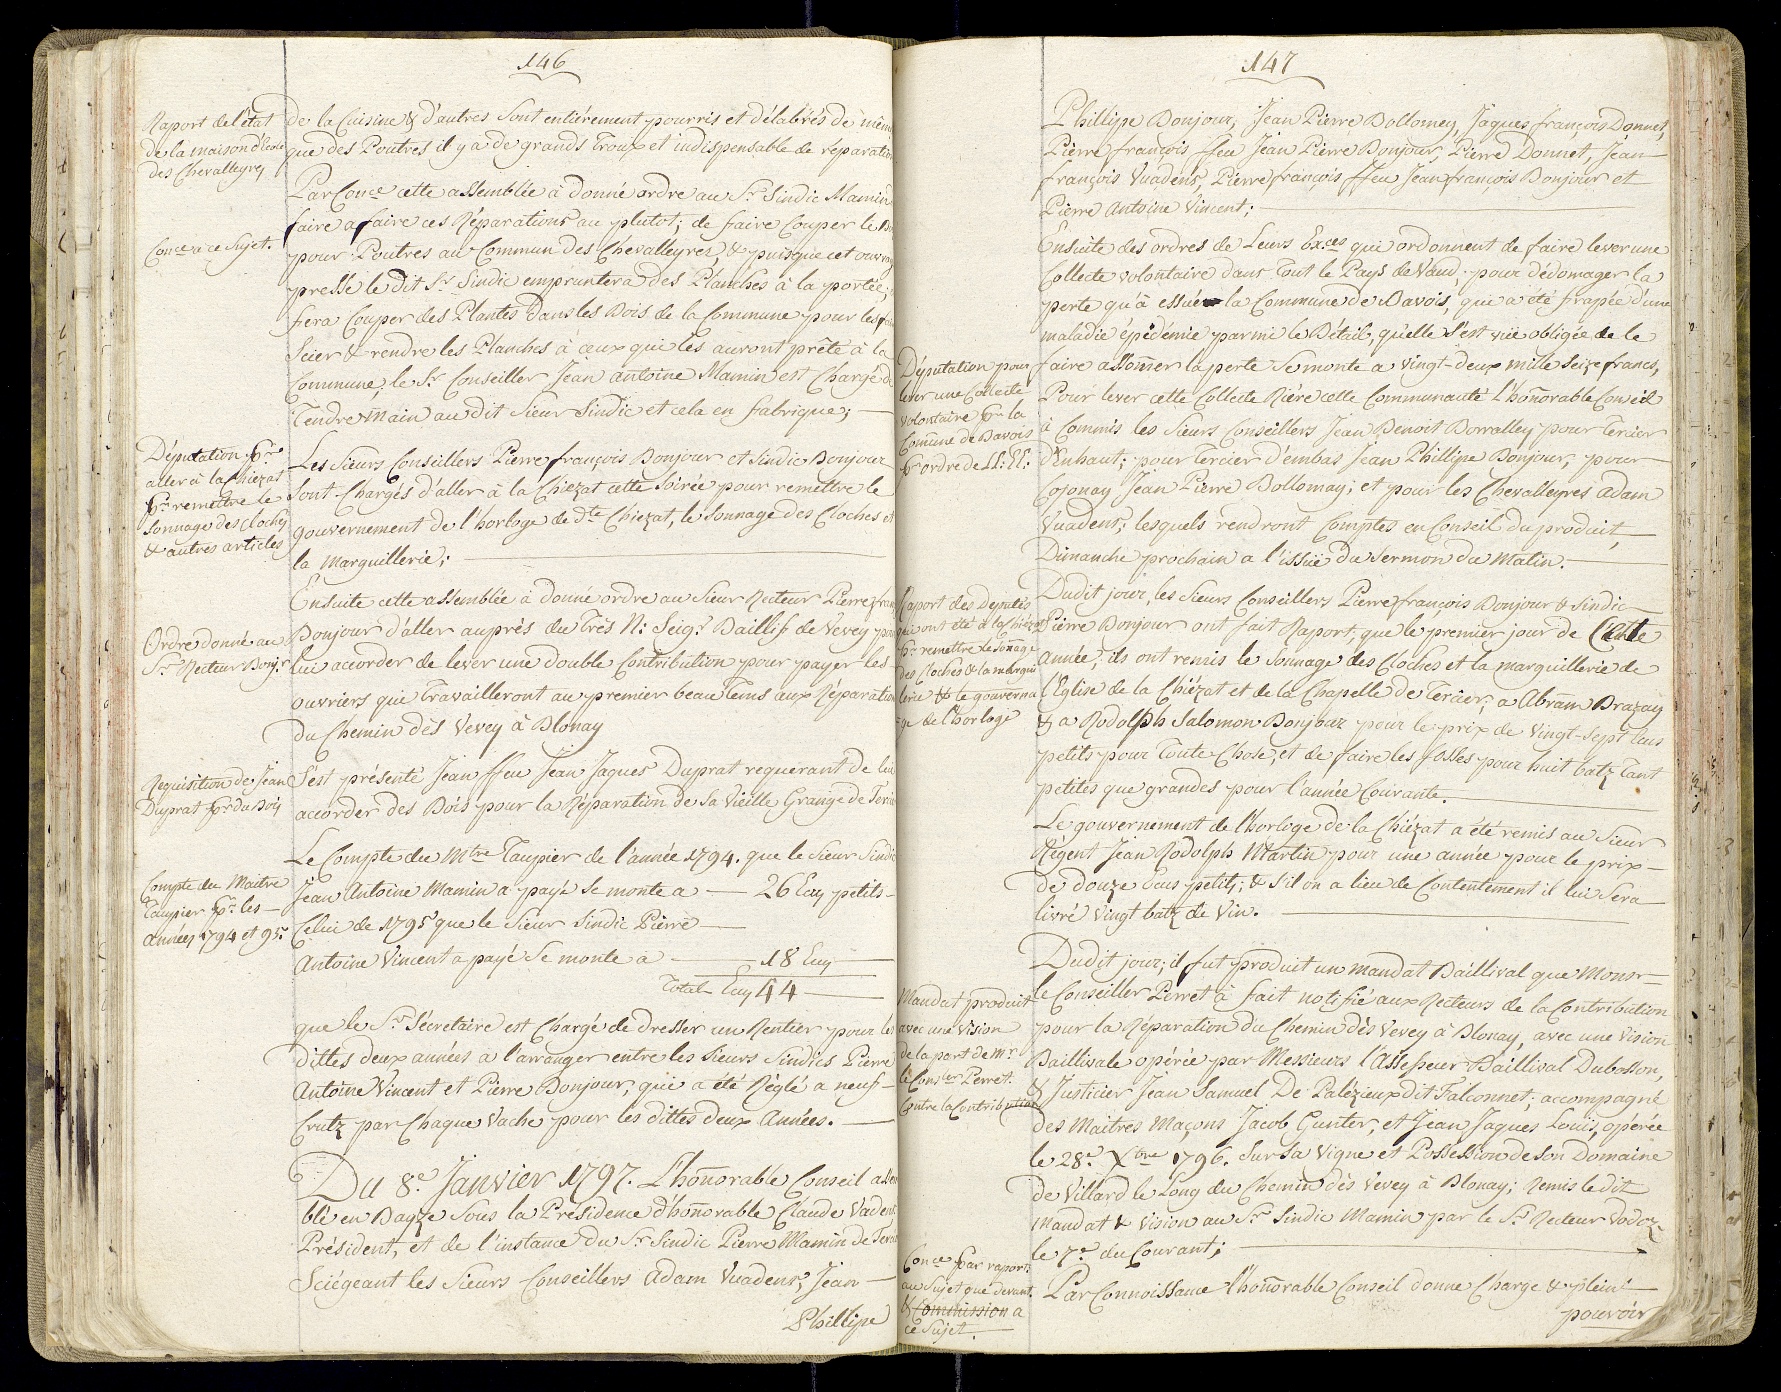 146
Raport de l'état
de la maison d'Ecole
des Chevalleyres
de la Cuisine & d'autres sont entiérement pourris et délabrés de mêm
que des Poutres il y a de grands Troux et indispensable de réparation
Par Conce cette assemblée à donné ordre au Sr. Sindic Mamin
Conce a ce Sujet.
faire a faire ces Réparations au plutot; de faire Couper le
pour Poutres au Commun des Chevalleyres, & puisque cet ouvra
pressé le dit Sr. Sindic empruntera des Planches à la portée;
fera Couper des Plantes dans les Bois de la Commune pour les
Scier & rendre les Planches à ceux qui les auront prêté à la
Commune, le Sr. Conseiller Jean Antoine Mamin est Chargé d
Tendre main au dit Sieur Sindic et cela en fabrique;
Députation pr.
aller à la Chiezat
pr. remettre le
Sonnage des Cloches
& autres articles
Les Sieurs Conseillers Pierre françois Bonjour et Sindic Bonjour
Sont Chargés d'aller à la Chiezat cette Soirée pour remettre le
gouvernement de l'horloge de dte Chiezat, le Sonnage des Cloches et
la Marguillerie;
Ordre donné au
Sr. Recteur Bonjr
Ensuite cette assemblée à donné ordre au Sieur Recteur Pierre fran
Bonjour d'aller auprès du Très N: Seigr Baillif de Vevey pour
lui accorder de lever une double Contribution pour payer les
ouvriers qui Travailleront au premier beau Tems aux Réparation
du Chemin dès Vevey à Blonay
Requisition de Jean
Duprat pr. du Bois
S'est présenté Jean ffeu Jean Jaques Duprat requerant de lui
accorder des Bois pour la Réparation de Sa Vieille Grange de Terci
Compte du Maitre
Taupier pr. les
années 1794 et 95.
Le Compte du Mtre Taupier de l'année 1794. que le Sieur Sindic
Jean Antoine Mamin a payé Se monte a — 26 Ecus petits
Celui de 1795 que le Sieur Sindic Pierre —
Antoine Vincent a payé Se monte a — 18 Ecus
Total Ecus 44
que le Sr. Sécretaire est Chargé de dresser un Rentier pour les
dittes deux années a l'arranger entre les Sieurs Sindics Pierre
Antoine Vincent et Pierre Bonjour, qui a été Réglé a neuf
Crutz par Chaque Vache pour les dittes deux Années.
Du 8e. Janvier 1797. L'hoñorable Conseil assem
blé en Bagze Sous la Présidence d'hoñorable Claude Vadens
Président, et de l'instance du Sr. Sindic Pierre Mamin de Terci
Sciégeant les Sieurs Conseillers Adam Vuadens, Jean
Phillipe
147
Phillipe Bonjour, Jean Pierre Dollomey, Jaques françois Donnet,
Pierre françois ffeu Jean Pierre Bonjour, Pierre Donnet, Jean
françois Vuadens, Pierre françois ffeu Jean françois Bonjour et
Pierre Antoine Vincent;
Députation pour
lever une Collecte
volontaire pr. la
Comune de Bavois
pr. ordre de LL: EE:
Ensuite des ordres de Leurs Exces qui ordonnent de faire lever une
Collecte volontaire dans Tout le Pays de Vaud pour dédomager la
perte qu'à essuée la Commune de Bavois, qui a été frapée d'une
maladie épédémie parmi le Bétail, qu'elle s'est vüe obligée de le
faire assoñer la perte Se monte a vingt-deux mille Seize francs,
Pour lever cette Collecte Rière cette Communauté L'hoñorable Conseil
à Commis les Sieurs Conseillers Jean Benoit Borralley pour Tercier
d'Enhaut; pour Tercier d'embas Jean Phillipe Bonjour, pour
Cojonay Jean Pierre Dollomay; et pour les Chevalleyres Adam
Vuadens; lesquels rendront Comptes en Conseil du produit,
Dimanche prochain a l'issüe du Sermon du Matin.
Raport des Députés
qui ont été à la Chiezat
pr. remettre le Soñage
des Cloches & la margui
lerie & le gouverna
ge de l'horloge
Dudit jour, les Sieurs Conseillers Pierre françois Bonjour & Sindic
Pierre Bonjour ont fait Raport, que le premier jour de Cette
Année, ils ont remis le Sonnage des Cloches et la marguillerie de
l'Eglise de la Chiézat et de la Chapelle de Tercier, a Abram Brazay
& a Rodolph Salomon Bonjour pour le prix de Vingt-Sept Ecus
petits pour Toute Chose, et de faire les fosses pour huit batz Tant
petites que grandes pour l'année Courante.
Le gouvernement de l'horloge de la Chiézat a été remis au Sieur
Régent Jean Rodolph Martin pour une année pour le prix
de douze Ecus petits; & s'il on a lieu de Contentement il lui Sera
livré vingt batz de Vin.
Mandat produit
avec une Vision
de la part de Mr.
le Conser Perret
Contre la Contribution
Dudit jour; il fut produit un mandat Baillival que Monsr
le Conseiller Perret à fait notifié aux Recteurs de la Contribution
pour la Réparation du Chemin dès Vevey à Blonay, avec une Vision
Baillivale opérée par Messieurs l'Assesseur Baillival Dubosson,
& Justicier Jean Samuel De Palézieux dit Falconnet; accompagné
des Maitres Maçons Jacob Gunter, et Jean Jaques Louis, opérée
le 28e. Xbre 1796. Sur Sa Vigne et Possession de Son Domaine
de Villard le Long du Chemin dès Vevey à Blonay; Remis le dit
Mandat & Vision au Sr. Sindic Mamin par le Sr. Recteur Dodoz
le 7e. du Courant;
Conce par raport
au Sujet que devant
& Commission a
ce Sujet.
Par Connoissance l'hoñorable Conseil donne Charge & plein
pouvoir